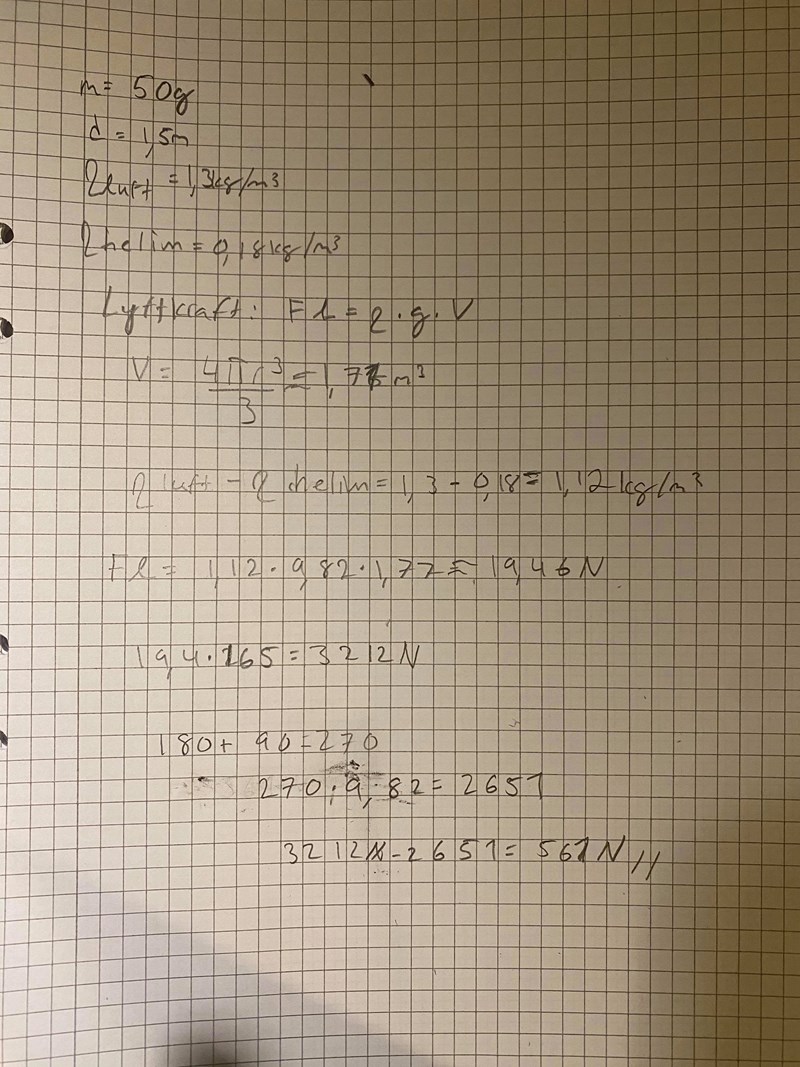 m= 50g
d = 1,5m
ρluft = 1,3kg/m³
ρhelim = 0,18kg/m³
Lyftkraft: FL = ρ·g·V
V = 4πr³/3 = 1,77m³
ρ luft - ρ helim = 1,3 - 0,18 = 1,12kg/m³
FL = 1,12·9,82·1,77 = 19,46N
19,4·165 = 3212N
180+ 90=270
270·9,82 = 2651
3212N-2651 = 561N //